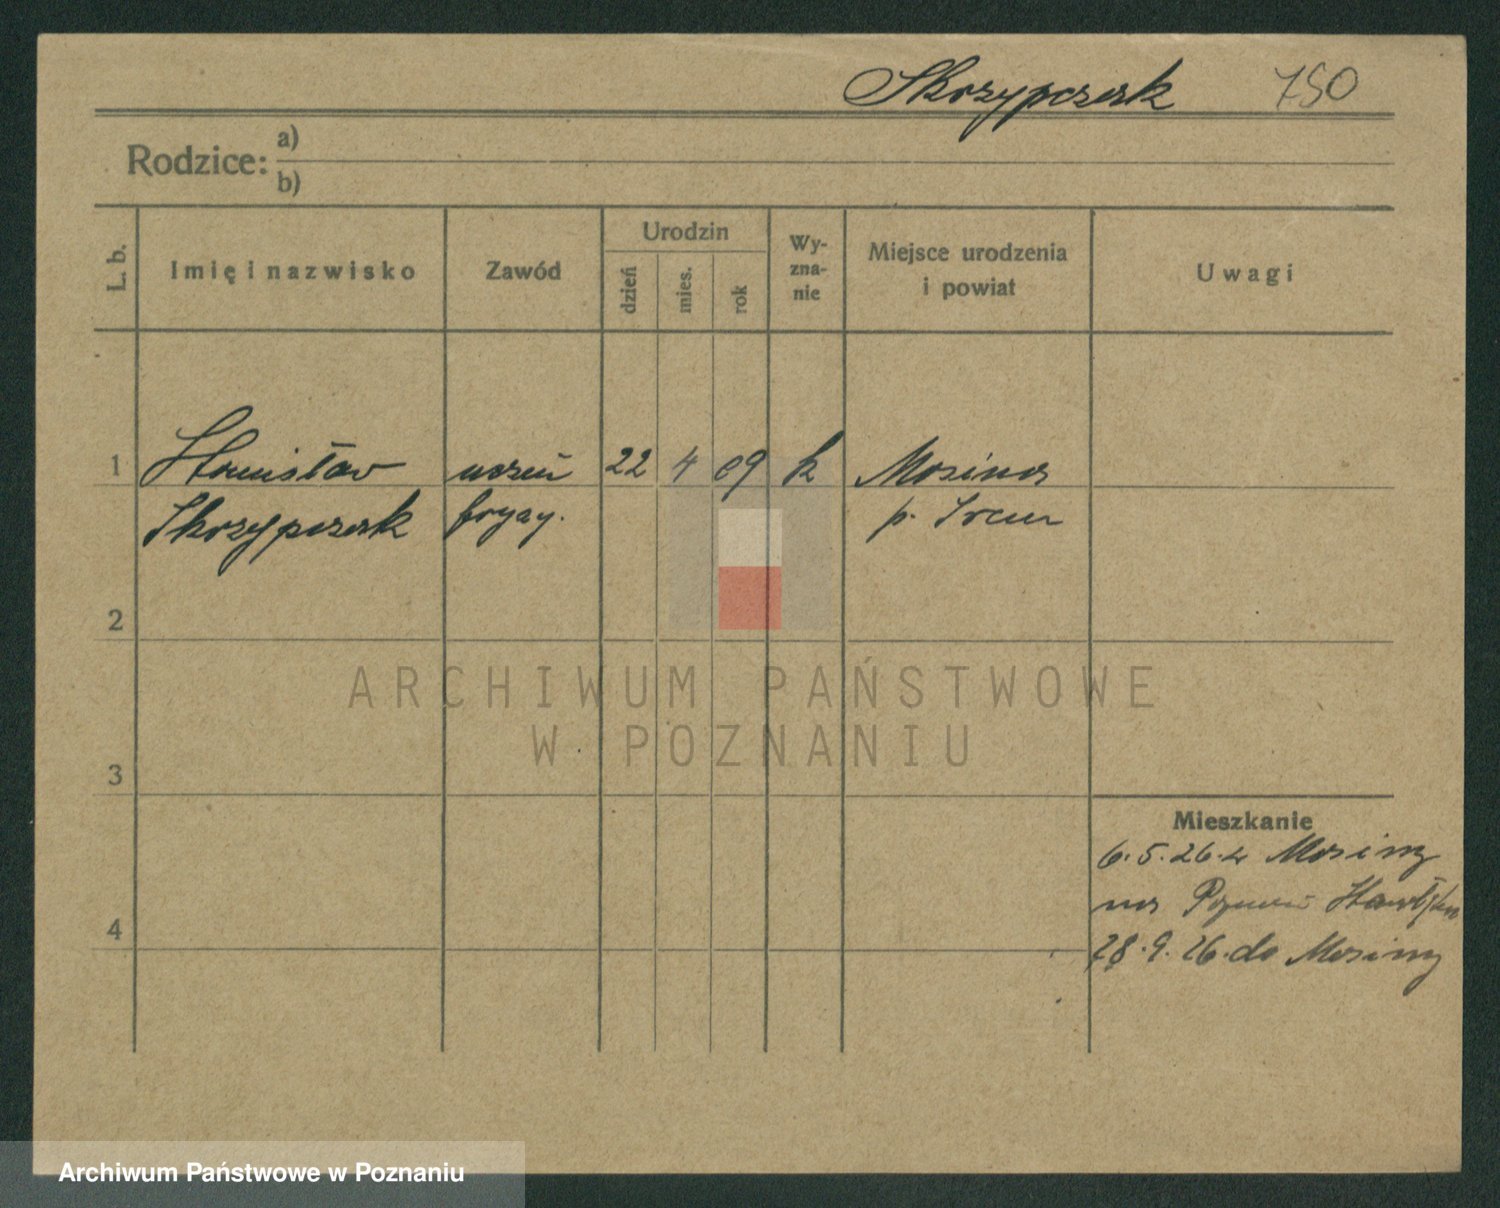 Skrzypczak 750
Rodzice: a)
b)
L. b.
Imię i nazwisko
Zawód
Urodzin
dzień
mies.
rok
Wy-
zna-
nie
Miejsce urodzenia
i powiat
Uwagi
1 Stanisław uczeń 22 4 09 k Mosina
Skrzypczak fryzj. p. Śrem
2
3
4
Mieszkanie
6.5.26 z Mosiny
na
28.9.26. do Mosiny
ARCHIWUM PAŃSTWOWE
W POZNANIU
Archiwum Państwowe w Poznaniu